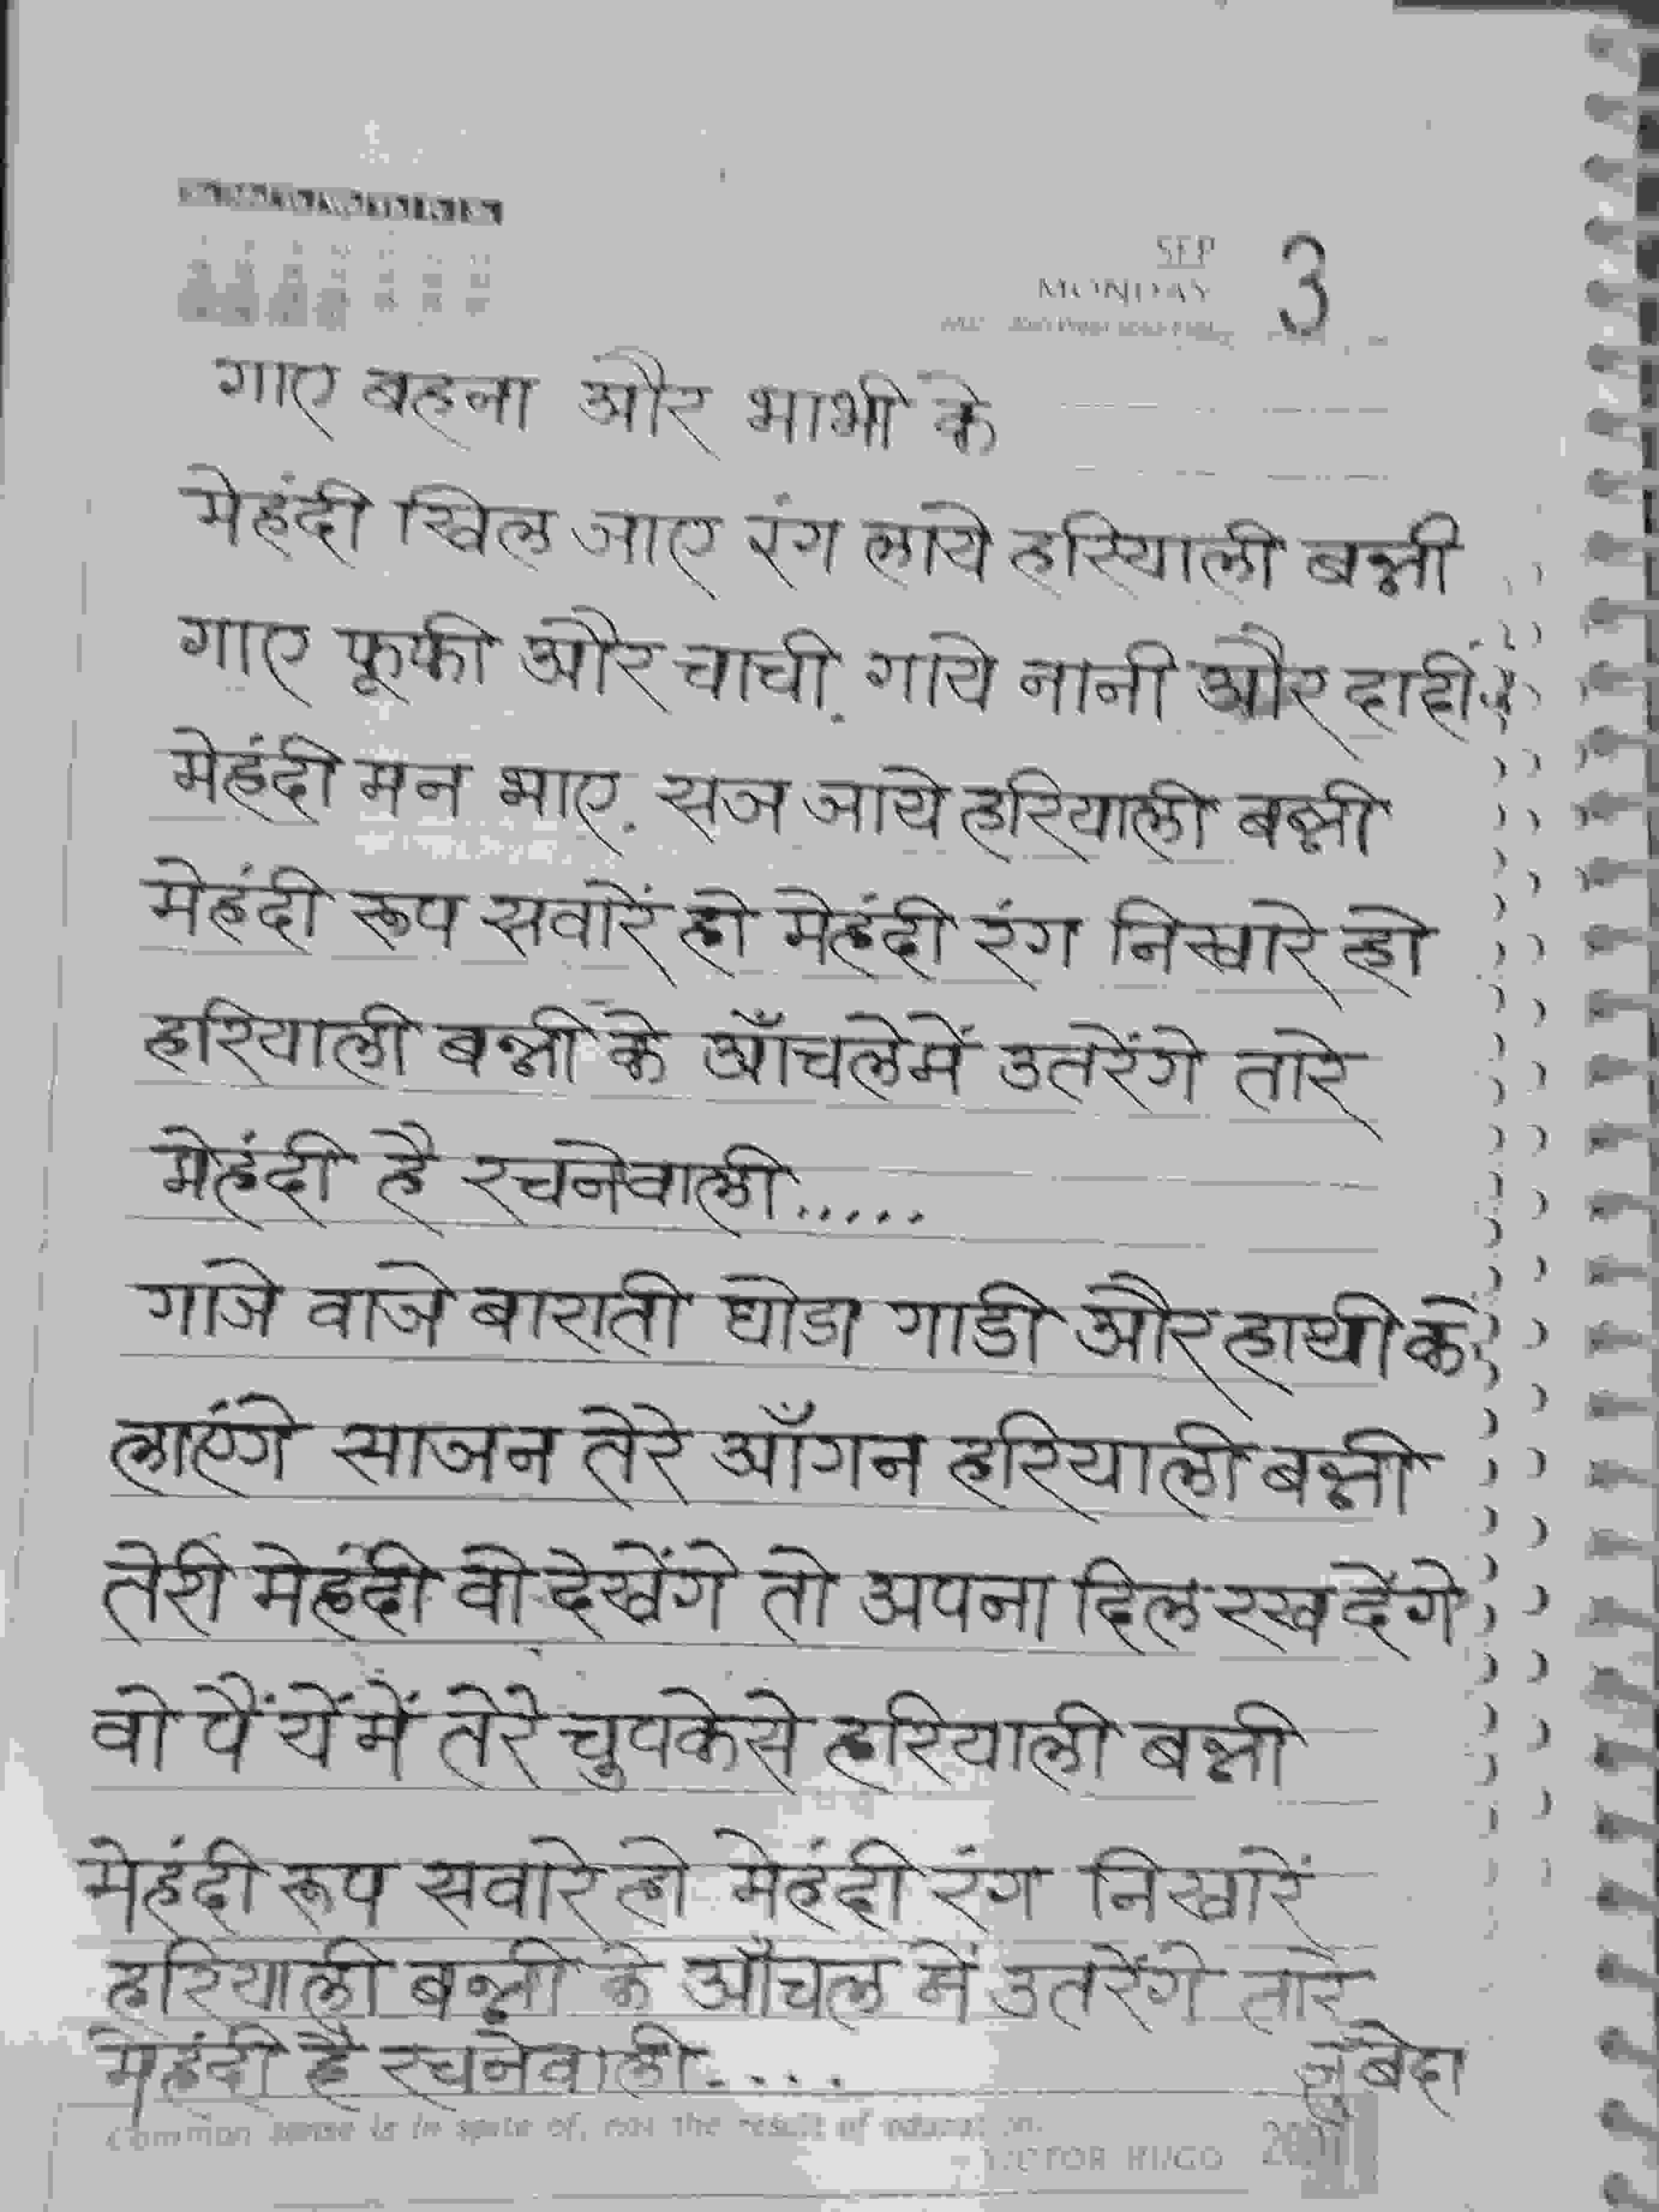 SEP
MONDAY 3
गाए बहना और भाभी के
मेहंदी खिल जाए रंग लाये हरियाली बन्नी
गाए फूफी और चाची. गाये नानी और दादी
मेहंदी मन भाए. सज जाये हरियाली बन्नी
मेहंदी रूप सवारें हो मेहंदी रंग निखारे हो
हरियाली बन्नी के आँचलेमें उतरेंगे तारे
मेहंदी है रचनेवाली.....
गाजे वाजे बाराती घोडा गाडी और हाथी के
लाएंगे साजन तेरे आँगन हरियाली बन्नी
तेरी मेहंदी वो देखेंगे तो अपना दिल रख देंगे
वो पैं यें में तेरे चुपकेसे हरियाली बन्नी
मेहंदी रूप सवारे हो मेहंदी रंग निखारें
हरियाली बन्नी के आँचल में उतरेंगे तारे
मेहंदी है रचनेवाली....
जुबेदा
Common sense is in spite of, not the result of education.
VICTOR HUGO